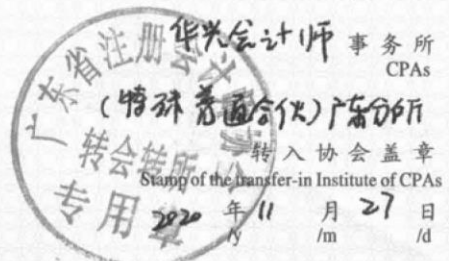 华兴会计师 事务所
CPAs
(特殊普通合伙)广东分所
转入协会盖章
Stamp of the transfer-in Institute of CPAs
2020 年 11 月 27 日
/y /m /d
广东省注册会计师协会
转会转所
专用章